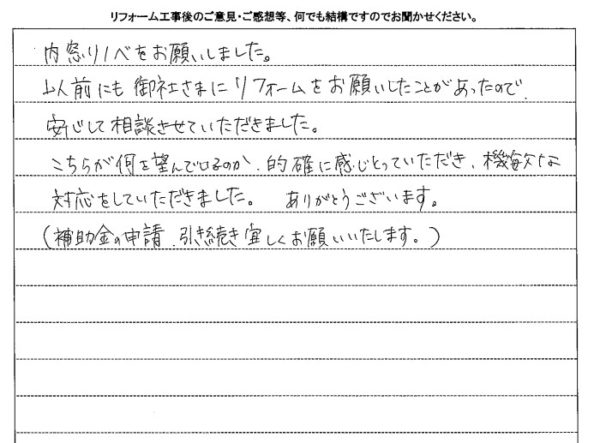 リフォーム工事後のご意見・ご感想等、何でも結構ですのでお聞かせください。
内窓リノベをお願いしました。
以前にも御社さまにリフォームをお願いしたことがあったので
安心して相談させていただきました。
こちらが何を望んでいるのか、的確に感じとっていただき、機敏な
対応をしていただきました。 ありがとうございます。
(補助金の申請、引き続き宜しくお願いいたします。)